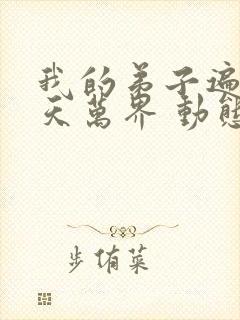 我的弟子遍
天萬界 動態
步侑菜